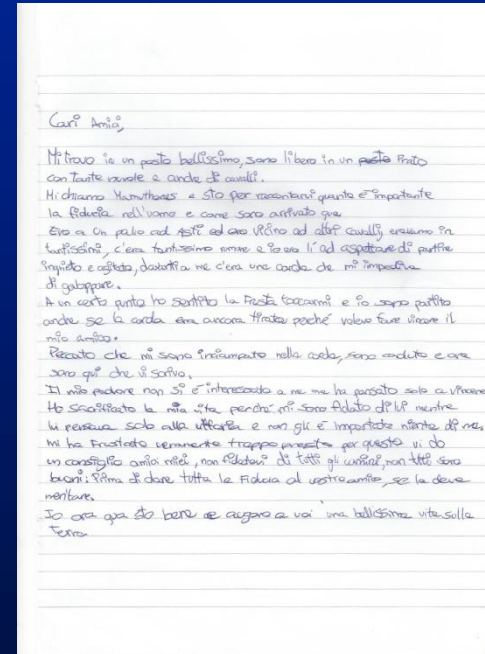 Cari Amici,
Mi trovo in un posto bellissimo, sono libero in un posto Prato
con tante nuvole e anche di cavalli.
Mi chiamo Mamuthones e sto per raccontarvi quanto è importante
la fiducia nell'uomo e come sono arrivato qua
Ero a un palio ad Asti ed ero vicino ad altri cavalli, eravamo in
tantissimi, c'era tantissimo rumore e io ero lì ad aspettare di partire
inquieto e agitato, davanti a me c'era una corda che mi impediva
di galoppare.
A un certo punto ho sentito la frusta toccarmi e io sono partito
anche se la corda era ancora tirata perché volevo fare vincere il
mio amico.
Peccato che mi sono inciampato nella corda, sono caduto e ora
sono qui che vi scrivo.
Il mio padrone non si è interessato a me ma ha pensato solo a vincere
Ho sacrificato la mia vita perché mi sono fidato di lui mentre
lui pensava solo alla vittoria e non gli è importato niente di me,
mi ha frustato veramente troppo presto per questo vi do
un consiglio amici miei, non fidatevi di tutti gli uomini, non tutti sono
buoni: Prima di dare tutta la Fiducia al vostro amico, se la deve
meritare.
Io ora qua sto bene e auguro a voi una bellissima vita sulla
Terra